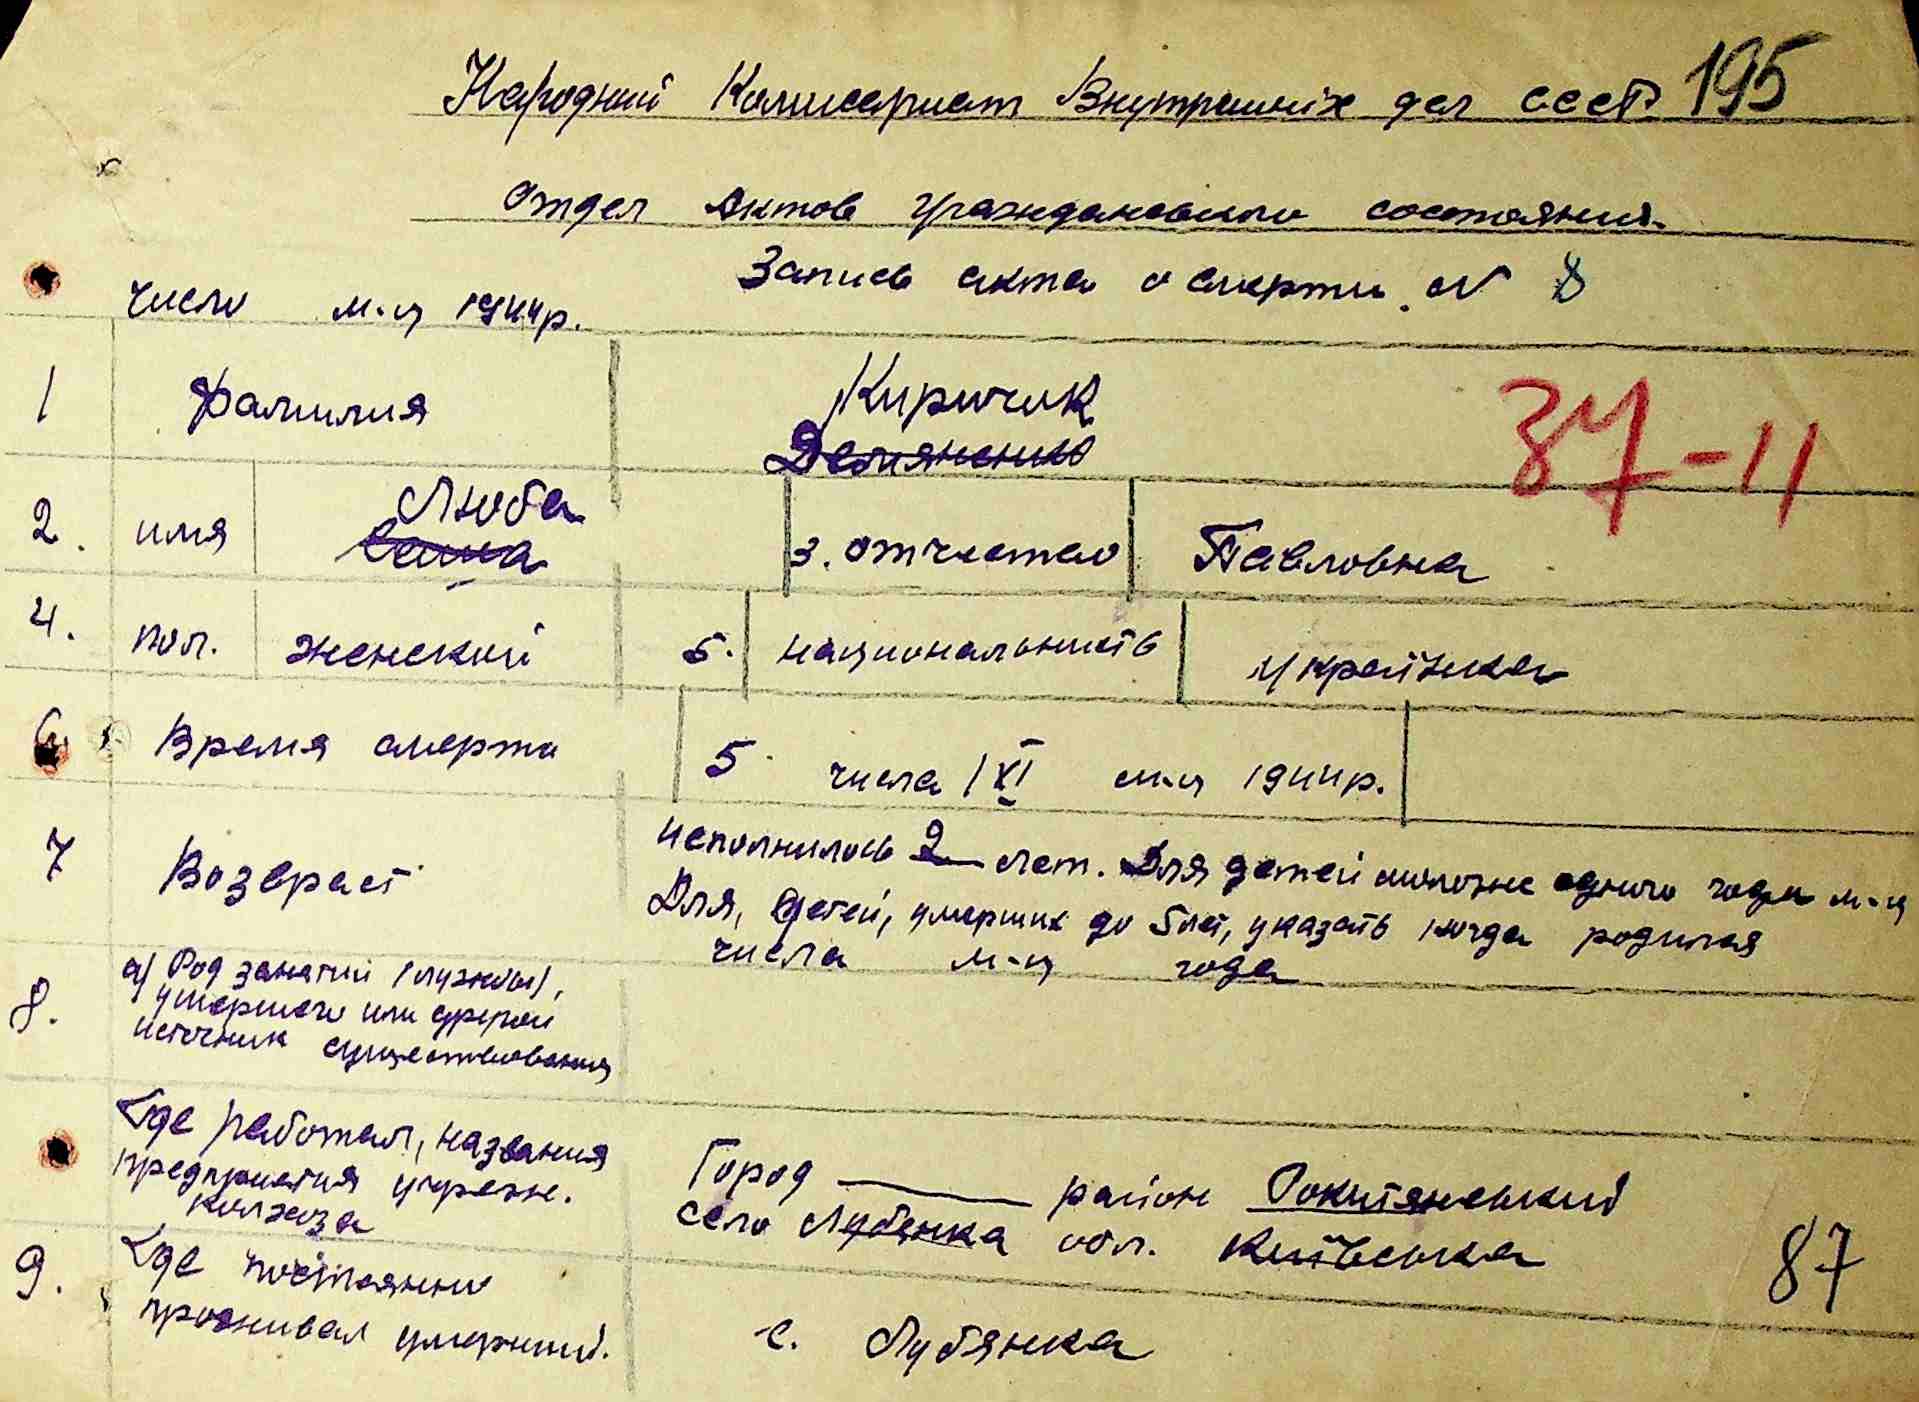 Народний Комисериат Внутрешніх дел СССР. 195
Отдел Актов Граждановского состояния.
Запись акта о смерти. N 8
число м-ц 1944р.
1 Фамилия Киричик
Демяненко
37-11
2. имя Люба 3. отчество Павловна
4. пол. женский 5. национальність українка
6. Время смерти 5 числа 1 XI м-ц 1944р.
7 Возвраст исполнилось 2 лет. Для детей моложе одного года м-ц
Для, детей, умерших до 5 лет, указать когда родился
числа м-ц года
8. а) Род занятий (службы),
умершего или другой
источник существования
Где работал, названия
предприятия учрежн.
колхоза
Город район Рокитянський
село Лубянка обл. Київська
87
9. Где постоянно
проживал умерший. с. Лубянка